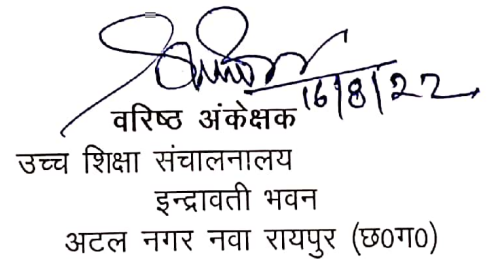 16/8/22
वरिष्ठ अंकेक्षक
उच्च शिक्षा संचालनालय
इन्द्रावती भवन
अटल नगर नवा रायपुर (छ0ग0)